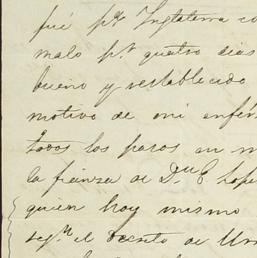 fué p.ª Inglaterra co
malo p.r quatro dias
bueno y restablecido
motivo de mi enfer
todos los pasos en
la fianza de D.n E Lope
quien hoy mismo
seg.n el Decreto de